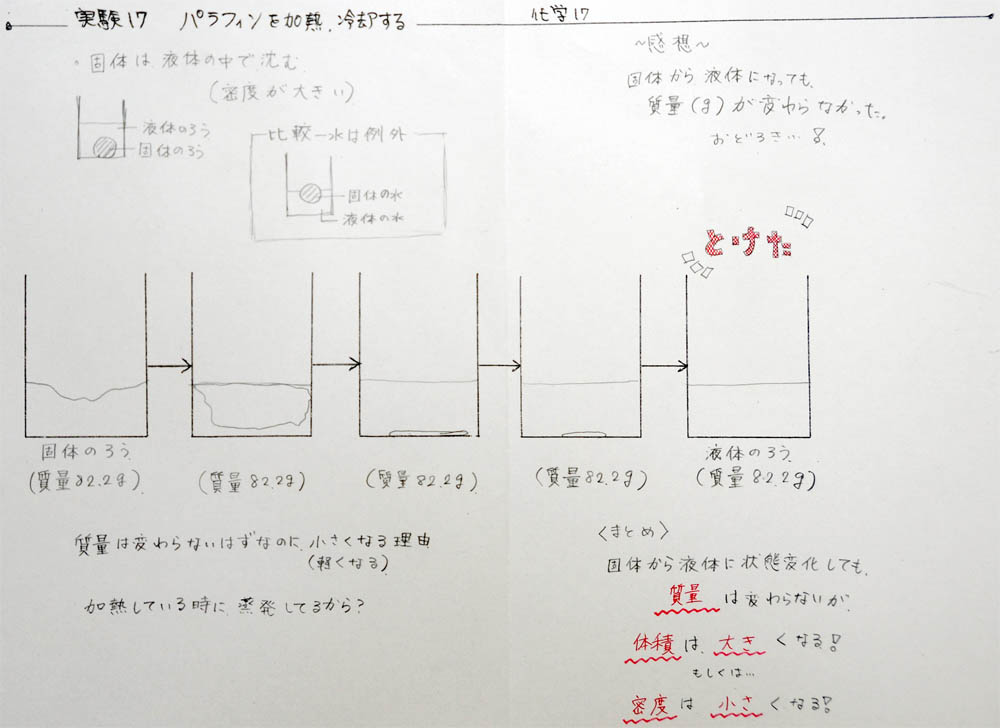 実験17 パラフィンを加熱、冷却する
化学17
・固体は液体の中で沈む
(密度が大きい)
液体のろう
固体のろう
比較―水は例外
固体の水
液体の水
~感想~
固体から液体になっても、
質量(g)が変わらなかった。
おどろきい!
とけた
固体のろう
(質量82.2g)
(質量82.2g)
(質量82.2g)
(質量82.2g)
液体のろう
(質量82.2g)
質量は変わらないはずなのに、小さくなる理由
(軽くなる)
加熱している時に蒸発してるから?
〈まとめ〉
固体から液体に状態変化しても、
質量は変わらないが、
体積は、大きくなる!
もしくは…
密度は小さくなる!